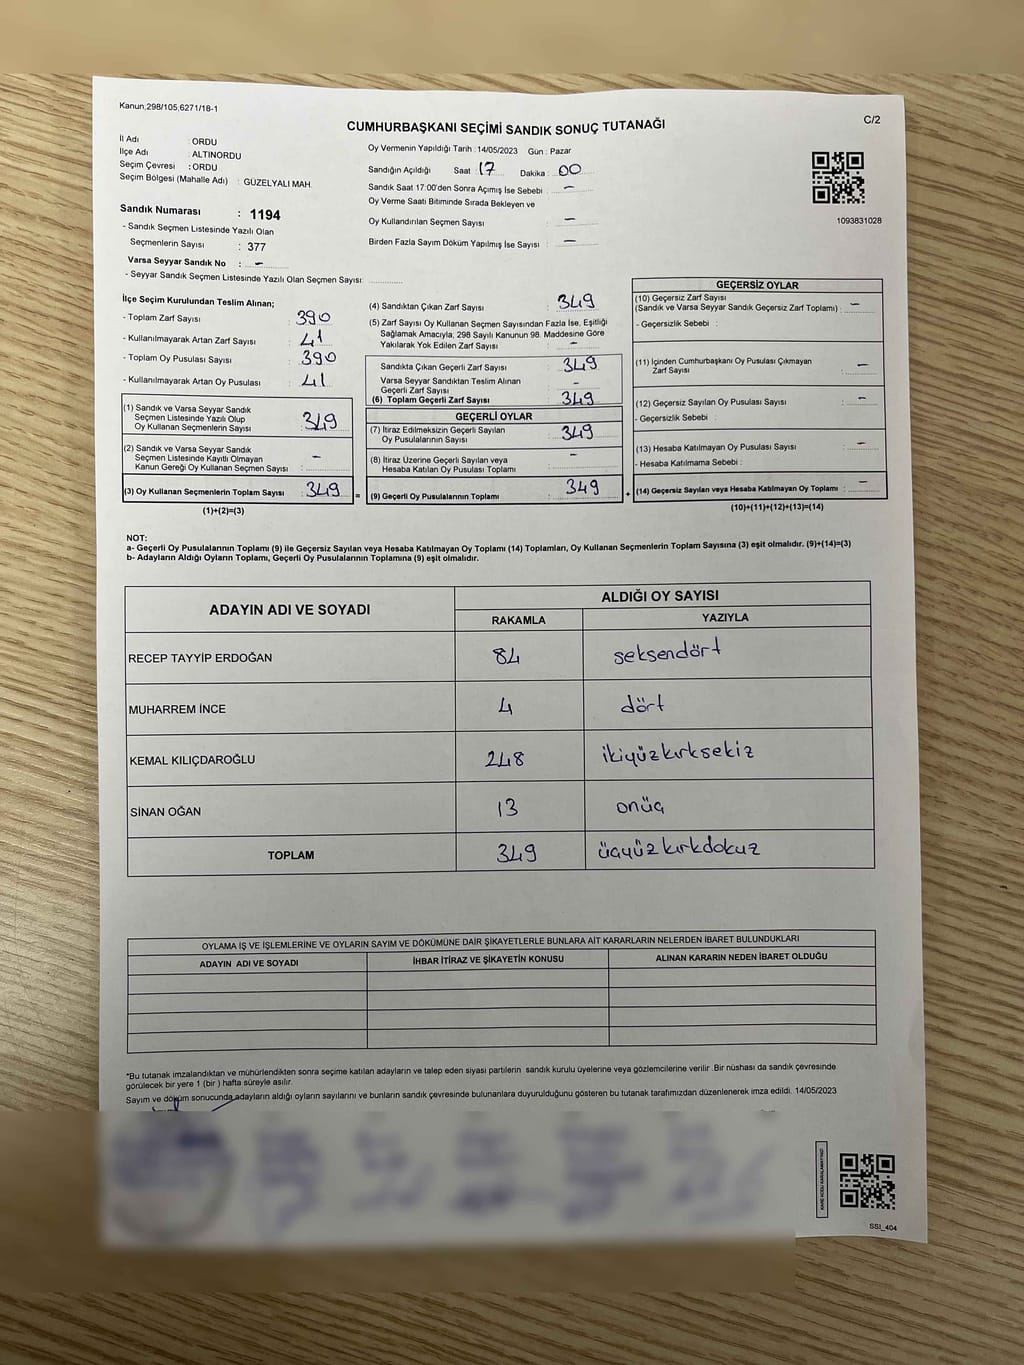 Kanun,298/105,6271/18-1
C/2
CUMHURBAŞKANI SEÇİMİ SANDIK SONUÇ TUTANAĞI
İl Adı : ORDU
İlçe Adı : ALTINORDU
Seçim Çevresi : ORDU
Seçim Bölgesi (Mahalle Adı) : GÜZELYALI MAH.
Sandık Numarası : 1194
- Sandık Seçmen Listesinde Yazılı Olan
Seçmenlerin Sayısı : 377
Varsa Seyyar Sandık No : -
- Seyyar Sandık Seçmen Listesinde Yazılı Olan Seçmen Sayısı:
Oy Vermenin Yapıldığı Tarih : 14/05/2023 Gün : Pazar
Sandığın Açıldığı Saat : 17 Dakika : 00
Sandık Saat 17:00'den Sonra Açımış İse Sebebi : -
Oy Verme Saati Bitiminde Sırada Bekleyen ve
Oy Kullandırılan Seçmen Sayısı : -
Birden Fazla Sayım Döküm Yapılmış İse Sayısı : -
1093831028
İlçe Seçim Kurulundan Teslim Alınan;
- Toplam Zarf Sayısı : 390
- Kullanılmayarak Artan Zarf Sayısı : 41
- Toplam Oy Pusulası Sayısı : 390
- Kullanılmayarak Artan Oy Pusulası : 41
(1) Sandık ve Varsa Seyyar Sandık
Seçmen Listesinde Yazılı Olup
Oy Kullanan Seçmenlerin Sayısı : 349
(2) Sandık ve Varsa Seyyar Sandık
Seçmen Listesinde Kayıtlı Olmayan
Kanun Gereği Oy Kullanan Seçmen Sayısı : -
(3) Oy Kullanan Seçmenlerin Toplam Sayısı : 349 =
(1)+(2)=(3)
(4) Sandıktan Çıkan Zarf Sayısı : 349
(5) Zarf Sayısı Oy Kullanan Seçmen Sayısından Fazla İse, Eşitliği
Sağlamak Amacıyla, 298 Sayılı Kanunun 98. Maddesine Göre
Yakılarak Yok Edilen Zarf Sayısı : -
Sandıkta Çıkan Geçerli Zarf Sayısı : 349
Varsa Seyyar Sandıktan Teslim Alınan
Geçerli Zarf Sayısı : -
(6) Toplam Geçerli Zarf Sayısı : 349
GEÇERLİ OYLAR
(7) İtiraz Edilmeksizin Geçerli Sayılan
Oy Pusulalarının Sayısı : 349
(8) İtiraz Üzerine Geçerli Sayılan veya
Hesaba Katılan Oy Pusulası Toplamı : -
(9) Geçerli Oy Pusulalarının Toplamı : 349 +
GEÇERSİZ OYLAR
(10) Geçersiz Zarf Sayısı
(Sandık ve Varsa Seyyar Sandık Geçersiz Zarf Toplamı) : -
- Geçersizlik Sebebi :
(11) İçinden Cumhurbaşkanı Oy Pusulası Çıkmayan
Zarf Sayısı : -
(12) Geçersiz Sayılan Oy Pusulası Sayısı : -
- Geçersizlik Sebebi :
(13) Hesaba Katılmayan Oy Pusulası Sayısı : -
- Hesaba Katılmama Sebebi :
(14) Geçersiz Sayılan veya Hesaba Katılmayan Oy Toplamı : -
(10)+(11)+(12)+(13)=(14)
NOT:
a- Geçerli Oy Pusulalarının Toplamı (9) ile Geçersiz Sayılan veya Hesaba Katılmayan Oy Toplamı (14) Toplamları, Oy Kullanan Seçmenlerin Toplam Sayısına (3) eşit olmalıdır. (9)+(14)=(3)
b- Adayların Aldığı Oyların Toplamı, Geçerli Oy Pusulalarının Toplamına (9) eşit olmalıdır.
ADAYIN ADI VE SOYADI ALDIĞI OY SAYISI
RAKAMLA YAZIYLA
RECEP TAYYİP ERDOĞAN 84 seksendört
MUHARREM İNCE 4 dört
KEMAL KILIÇDAROĞLU 248 ikiyüzkırksekiz
SİNAN OĞAN 13 onüç
TOPLAM 349 üçyüzkırkdokuz
OYLAMA İŞ VE İŞLEMLERİNE VE OYLARIN SAYIM VE DÖKÜMÜNE DAİR ŞİKAYETLERLE BUNLARA AİT KARARLARIN NELERDEN İBARET BULUNDUKLARI
ADAYIN ADI VE SOYADI İHBAR İTİRAZ VE ŞİKAYETİN KONUSU ALINAN KARARIN NEDEN İBARET OLDUĞU
*Bu tutanak imzalandıktan ve mühürlendikten sonra seçime katılan adayların ve talep eden siyasi partilerin sandık kurulu üyelerine veya gözlemcilerine verilir .Bir nüshası da sandık çevresinde
görülecek bir yere 1 (bir ) hafta süreyle asılır.
Sayım ve döküm sonucunda adayların aldığı oyların sayılarını ve bunların sandık çevresinde bulunanlara duyurulduğunu gösteren bu tutanak tarafımızdan düzenlenerek imza edildi. 14/05/2023
KARE KODU KARALAMAYINIZ!
SSI_404